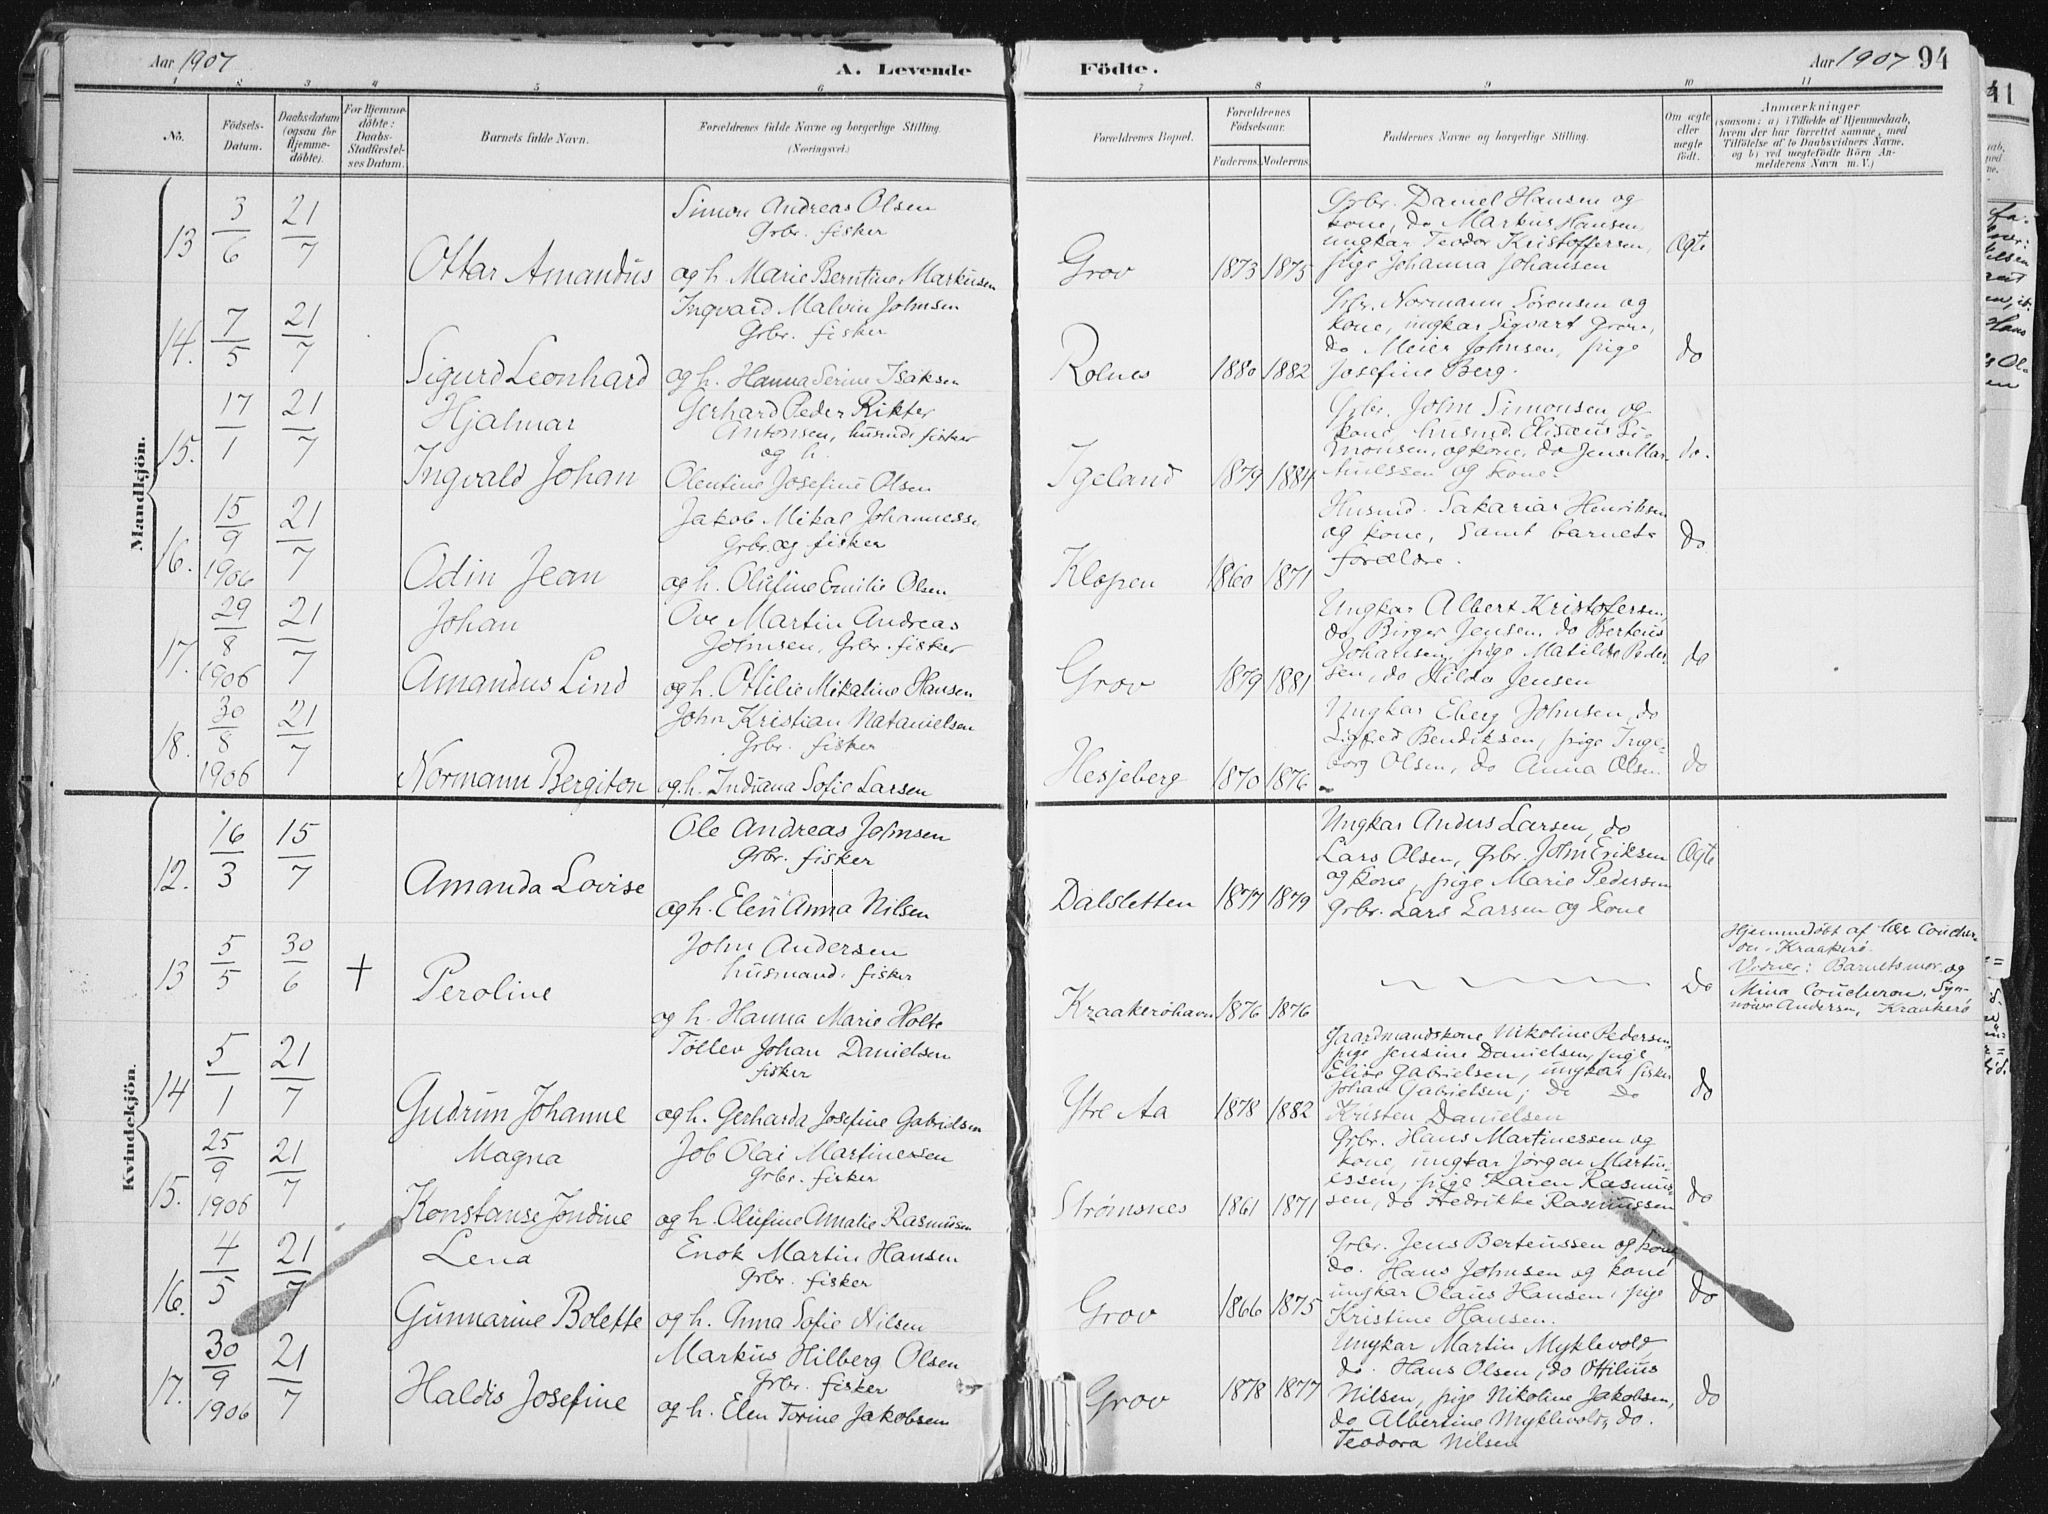 Aar 1907
A. Levende
Födte.
Aar 1907 94
1 2 3 4 5 6 7 8 9 10 11
No.
Födsels-
Datum.
Daabsdatum
(ogsaa for
Hjemme-
döbte).
For Hjemme-
döbte:
Daabs-
Stadfæstel-
ses Datum.
Barnets fulde Navn.
Forældrenes fulde Navne og borgerlige Stilling.
(Næringsvei.)
Forældrenes Bopæl.
Forældrenes
Födselsaar.
Faderens. Moderens.
Faddernes Navne og borgerlige Stilling.
Om ægte
eller
uægte
født.
Anmærkninger
(saasom: a) i Tilfælde af Hjemmedaab,
hvem der har forrettet samme, med
Tilföielse af to Daabsvidners Navne,
og b) ved uægtefödte Börn An-
melderens Navn m. V.)
Mandkjön.
13
3/6
21/7
Ottar Amandus
Simon Andreas Olsen
Grbr. fisker
og h. Marie Berntine Markusen
Grov
1873 1875
Grbr. Daniel Hansen og
kone, do Markus Hansen,
ungkar Teodor Kristoffersen,
pige Johanna Johansen
Ægte
14.
7/5
21/7
Sigurd Leonhard
Ingvard Malvin Johnsen
Grbr. fisker
og h. Hanna Serine Isaksen
Rolnes
1880 1882
Grbr. Normann Sörensen og
kone, ungkar Sigvart Grov,
do Meier Johnsen, pige
Josefine Berg.
do
15.
17/1
21/7
Hjalmar
Ingvald Johan
Gerhard Peder Rikter
Antonsen, husmd. fisker
og h.
Olentine Josefine Olsen
Igeland
1879 1884
Grbr. John Simonsen og
kone, husmd. Elisæus Si-
monsen, og kone, do Jens Mar-
tinessen og kone.
do.
16.
15/9
1906
21/7
Odin Jean
Jakob Mikal Johanness.
Grbr. og fisker
og h. Olufine Emilie Olsen
Klopen
1860 1871
Husmd. Sakarias Henriksen
og kone, samt barnets
forældre.
do
17.
29/8
1906
21/7
Johan
Amandus Lind
Ove Martin Andreas
Johnsen, Grbr. fisker
og h. Ottilie Mikaline Hansen
Grov
1879 1881
Ungkar Albert Kristofersen,
do Birger Jensen, do Berteus
Johansen, pige Matilde Peder-
sen, do Hilda Jensen
do
18.
30/8
1906
21/7
Normann Bergiton
John Kristian Natanielsen
Grbr. fisker
og h. Indiana Sofie Larsen
Hesjeberg
1870 1876
Ungkar Eberg Johnsen, do
Sigfred Bendiksen, pige Inge-
borg Olsen, do Anna Olsen
do
Kvindekjön.
12.
16/3
15/7
Amanda Lovise
Ole Andreas Johnsen
Grbr. fisker
og h. Elen Anna Nilsen
Dalsletten
1877 1879
Ungkar Anders Larsen, do
Lars Olsen, Grbr. John Eriksen
og kone, pige Marie Pedersen
Grbr. Lars Larsen og kone
Ægte
13
5/5
30/6
+
Peroline
John Andersen
husmand. fisker
og h. Hanna Marie Holte
Kraakeröhavn
1876 1876
do
Hjemmedöbt af Coucher-
on, Kraakerö.
Vidner: Barnets mor og
Mina Coucheron, Syn-
növe Andersen, Kraakerö
14
5/1
21/7
Gudrun Johanne
Tollev Johan Danielsen
fisker
og h. Gerharda Josefine Gabrielsen
Ytre Aa
1878 1882
Gaardmandskone Nikoline Pedersen,
pige Jensine Danielsen, pige
Elise Gabrielsen, ungkar fisker
Johan Gabrielsen, Do Do
Kristen Danielsen
do
15.
25/9
1906
21/7
Magna
Konstanse Jondine
Job Olai Martinessen
Grbr. fisker
og h. Olufine Amalie Rasmusen
Strømsnes
1861 1871
Grbr. Hans Martinessen og
kone, ungkar Jörgen Martin-
essen, pige Karen Rasmus-
sen, do Hedrikke Rasmussen
do
16.
4/5
21/7
Lena
Gunnarine Bolette
Enok Martin Hansen
Grbr. fisker
og h. Anna Sofie Nilsen
Grov
1866 1875
Grbr. Jens Berteussen og kone,
do. Hans Johnsen og kone
ungkar Olaus Hansen, pige
Kristine Hansen.
do
17.
30/9
1906
21/7
Haldis Josefine
Markus Hilberg Olsen
Grbr. fisker
og h. Elen Torine Jakobsen
Grov
1878 1877
Ungkar Martin Myklevold,
do. Hans Olsen, do Ottilius
Nilsen, pige Nikoline Jakobsen,
do Albertine Myklevold, do.
Teodora Nilsen
do